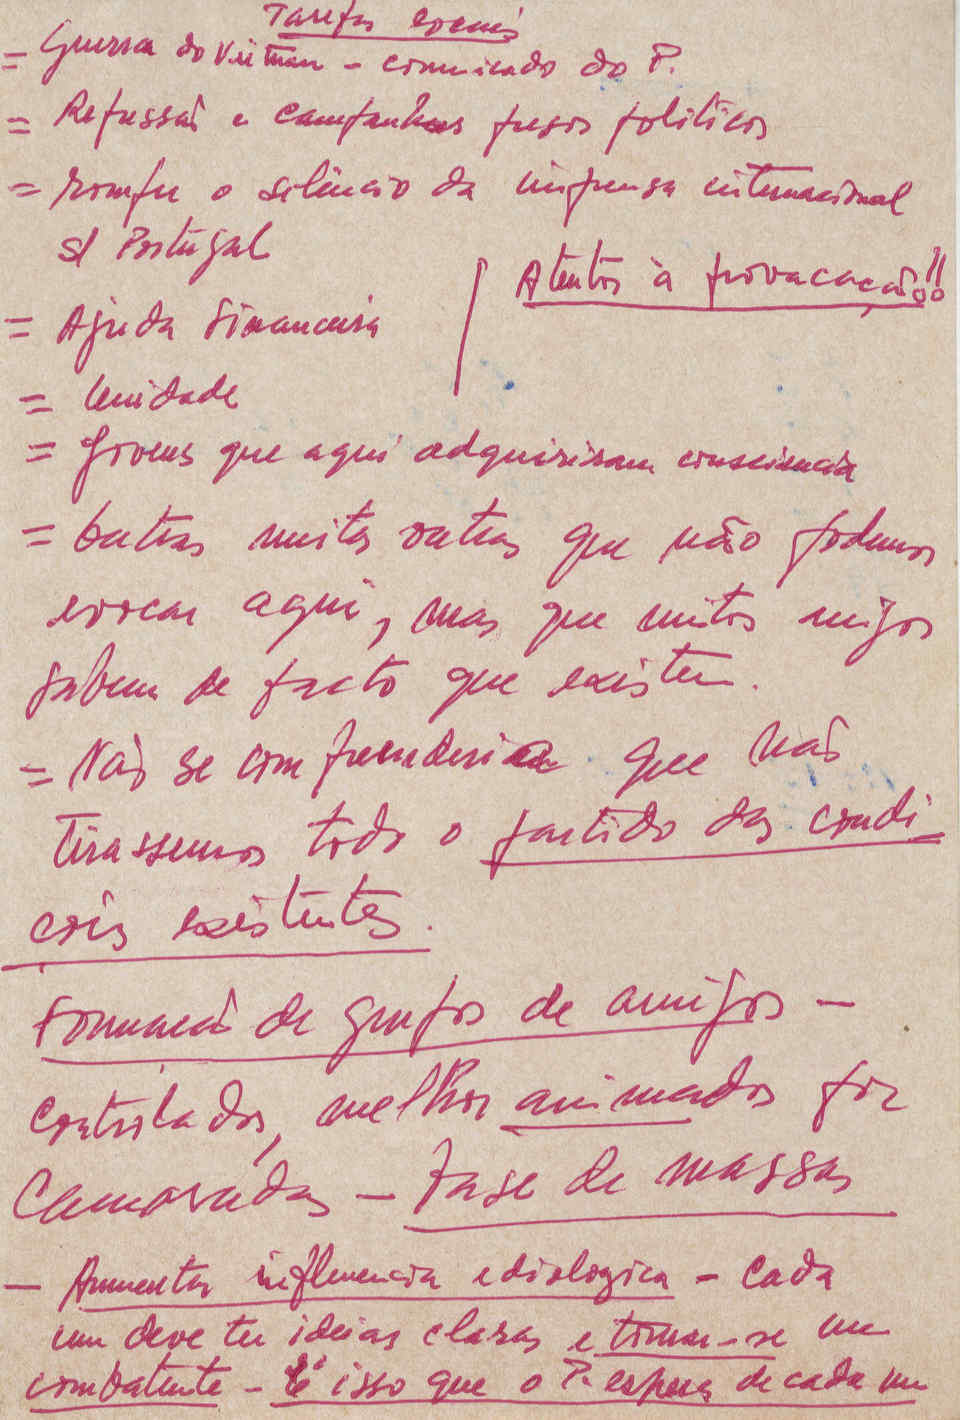 Tarefas
= Guerra do Vietman - comunicado do P.
= Repressão e campanhas presos políticos
= romper o silêncio da imprensa internacional
s/ Portugal
Atentos à provocação!!
= Ajuda financeira
= Unidade
= Jovens que aqui adquiriram consciência
= Outras muitas outras que não podemos
evocar aqui, mas que muitos amigos
sabem de facto que existem.
= Não se compreenderia que não
tirassemos todo o partido das condi
ções existentes.
Formação de grupos de amigos -
Controlados, melhor animados por
Camaradas - fase de massas
- Aumentar influencia ediologica - Cada
um deve ter ideias claras e tornar-se um
combatente - É isso que o P. espera de cada um